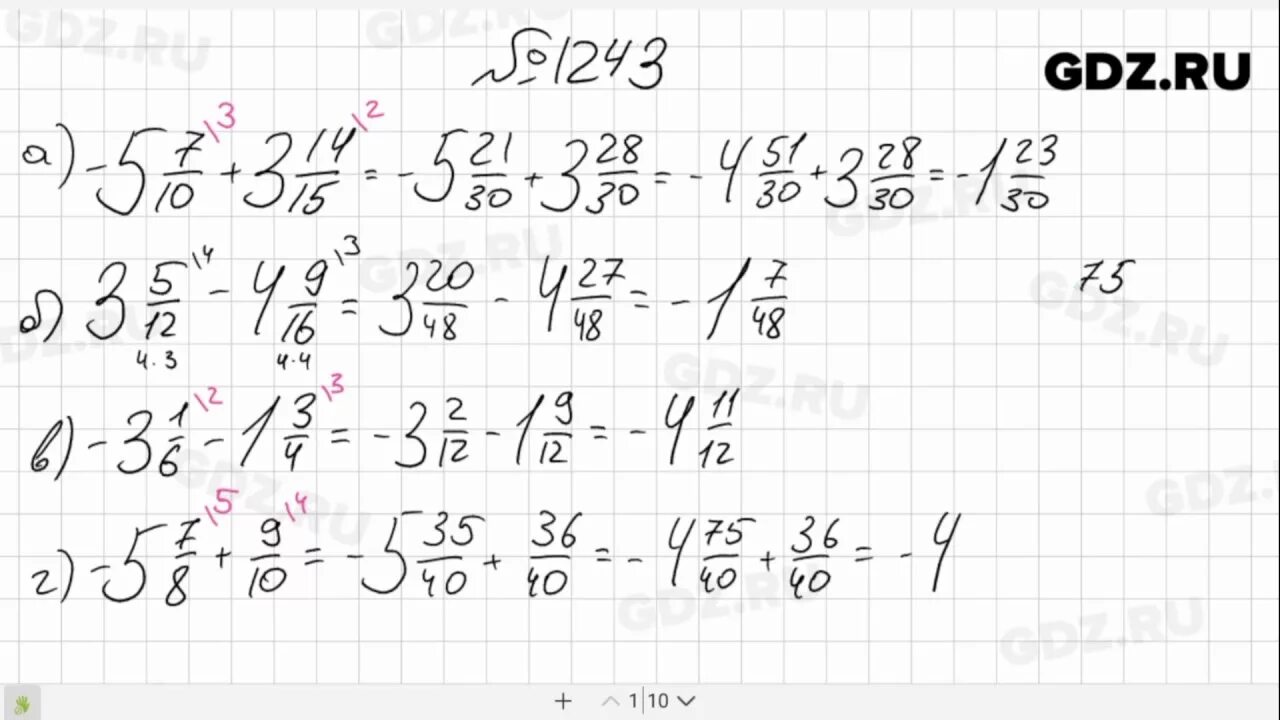 №1243
GDZ.RU
а) -5 7/10 \3 + 3 14/15 \2 = -5 21/30 + 3 28/30 = -4 51/30 + 3 28/30 = -1 23/30
б) 3 5/12 \4 - 4 9/16 \3 = 3 20/48 - 4 27/48 = -1 7/48
4·3 4·4
75
в) -3 1/6 \2 - 1 3/4 \3 = -3 2/12 - 1 9/12 = -4 11/12
г) -5 7/8 \5 + 9/10 \4 = -5 35/40 + 36/40 = -4 75/40 + 36/40 = -4
1|10